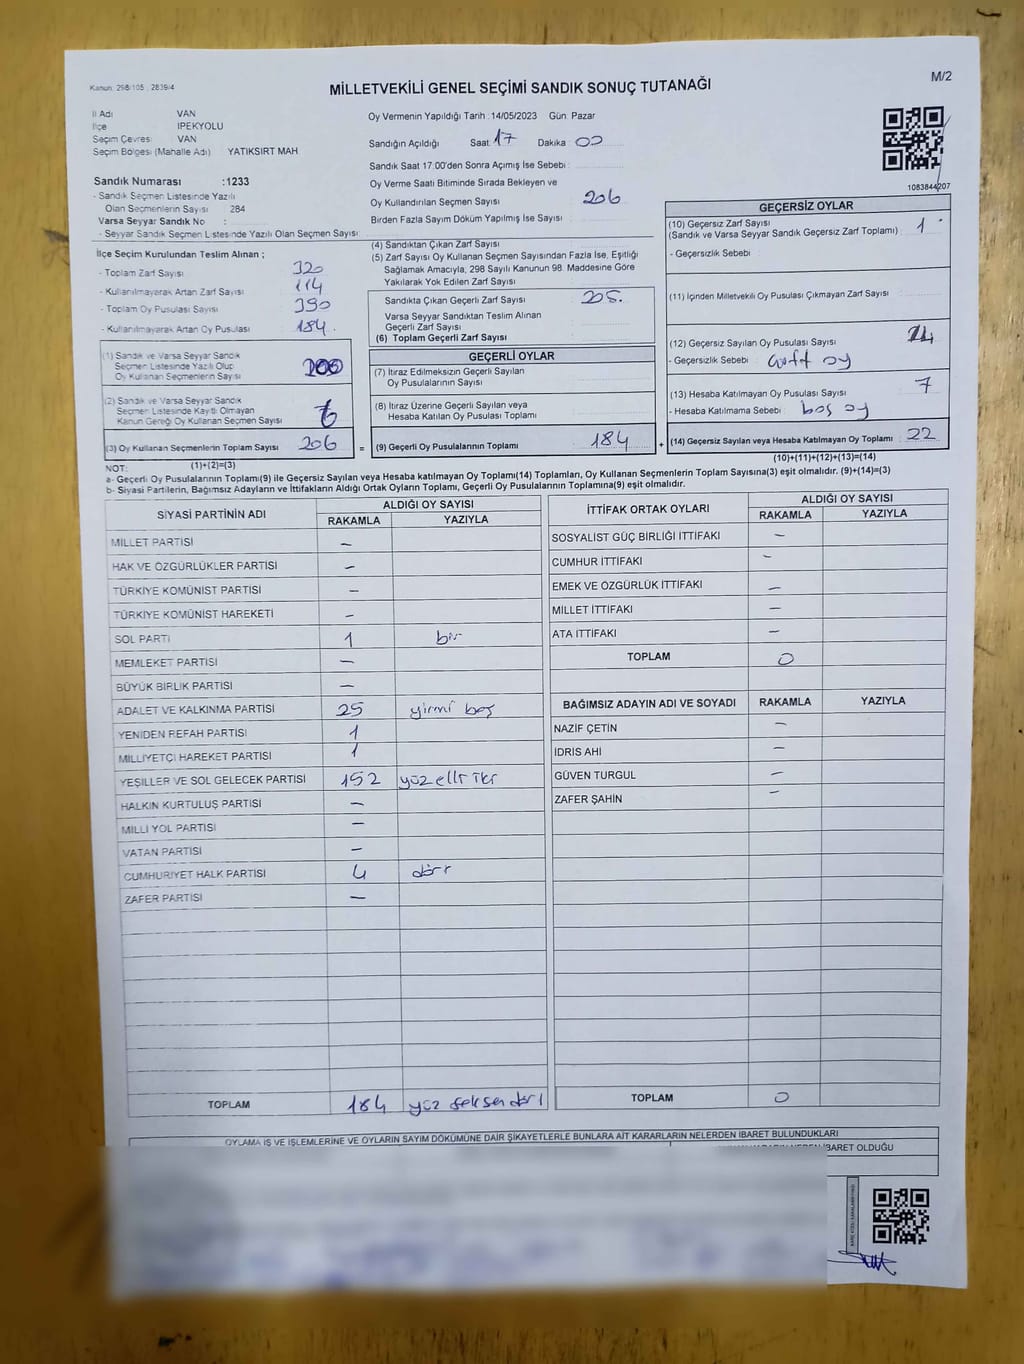 Kanun: 298/105 , 2839/4
MİLLETVEKİLİ GENEL SEÇİMİ SANDIK SONUÇ TUTANAĞI
M/2
İl Adı VAN
İlçe İPEKYOLU
Seçim Çevresi VAN
Seçim Bölgesi (Mahalle Adı) YATIKSIRT MAH
Sandık Numarası :1233
- Sandık Seçmen Listesinde Yazılı
Olan Seçmenlerin Sayısı 284
Varsa Seyyar Sandık No :
- Seyyar Sandık Seçmen Listesinde Yazılı Olan Seçmen Sayısı:
Oy Vermenin Yapıldığı Tarih : 14/05/2023 Gün: Pazar
Sandığın Açıldığı Saat: 17 Dakika: 00
Sandık Saat 17:00'den Sonra Açımış İse Sebebi :
Oy Verme Saati Bitiminde Sırada Bekleyen ve
Oy Kullandırılan Seçmen Sayısı 206
Birden Fazla Sayım Döküm Yapılmış İse Sayısı :
1083844207
İlçe Seçim Kurulundan Teslim Alınan ;
- Toplam Zarf Sayısı 320
- Kullanılmayarak Artan Zarf Sayısı 114
- Toplam Oy Pusulası Sayısı 390
- Kullanılmayarak Artan Oy Pusulası 184
(1) Sandık ve Varsa Seyyar Sandık
Seçmen Listesinde Yazılı Olup
Oy Kullanan Seçmenlerin Sayısı
(2) Sandık ve Varsa Seyyar Sandık
Seçmen Listesinde Kayıtlı Olmayan
Kanun Gereği Oy Kullanan Seçmen Sayısı 6
(3) Oy Kullanan Seçmenlerin Toplam Sayısı 206
(1)+(2)=(3)
(4) Sandıktan Çıkan Zarf Sayısı
(5) Zarf Sayısı Oy Kullanan Seçmen Sayısından Fazla İse, Eşitliği
Sağlamak Amacıyla, 298 Sayılı Kanunun 98. Maddesine Göre
Yakılarak Yok Edilen Zarf Sayısı
Sandıkta Çıkan Geçerli Zarf Sayısı 205.
Varsa Seyyar Sandıktan Teslim Alınan
Geçerli Zarf Sayısı
(6) Toplam Geçerli Zarf Sayısı
GEÇERLİ OYLAR
(7) İtiraz Edilmeksizin Geçerli Sayılan
Oy Pusulalarının Sayısı
(8) İtiraz Üzerine Geçerli Sayılan veya
Hesaba Katılan Oy Pusulası Toplamı
= (9) Geçerli Oy Pusulalarının Toplamı 184 +
GEÇERSİZ OYLAR
(10) Geçersiz Zarf Sayısı
(Sandık ve Varsa Seyyar Sandık Geçersiz Zarf Toplamı) 1
- Geçersizlik Sebebi
(11) İçinden Milletvekili Oy Pusulası Çıkmayan Zarf Sayısı
(12) Geçersiz Sayılan Oy Pusulası Sayısı 14
- Geçersizlik Sebebi : Çift oy
(13) Hesaba Katılmayan Oy Pusulası Sayısı 7
- Hesaba Katılmama Sebebi : boş oy
(14) Geçersiz Sayılan veya Hesaba Katılmayan Oy Toplamı 22
(10)+(11)+(12)+(13)=(14)
NOT:
a- Geçerli Oy Pusulalarının Toplamı(9) ile Geçersiz Sayılan veya Hesaba katılmayan Oy Toplamı(14) Toplamları, Oy Kullanan Seçmenlerin Toplam Sayısına(3) eşit olmalıdır. (9)+(14)=(3)
b- Siyasi Partilerin, Bağımsız Adayların ve İttifakların Aldığı Ortak Oyların Toplamı, Geçerli Oy Pusulalarının Toplamına(9) eşit olmalıdır.
SİYASİ PARTİNİN ADI ALDIĞI OY SAYISI
RAKAMLA YAZIYLA
MİLLET PARTİSİ –
HAK VE ÖZGÜRLÜKLER PARTİSİ –
TÜRKİYE KOMÜNİST PARTİSİ –
TÜRKİYE KOMÜNİST HAREKETİ –
SOL PARTİ 1 bir
MEMLEKET PARTİSİ –
BÜYÜK BİRLİK PARTİSİ –
ADALET VE KALKINMA PARTİSİ 25 yirmi beş
YENİDEN REFAH PARTİSİ 1
MİLLİYETÇİ HAREKET PARTİSİ 1
YEŞİLLER VE SOL GELECEK PARTİSİ 152 yüz elli iki
HALKIN KURTULUŞ PARTİSİ –
MİLLİ YOL PARTİSİ –
VATAN PARTİSİ –
CUMHURİYET HALK PARTİSİ 4 dört
ZAFER PARTİSİ –
TOPLAM 184 yüz seksen dört
İTTİFAK ORTAK OYLARI ALDIĞI OY SAYISI
RAKAMLA YAZIYLA
SOSYALİST GÜÇ BİRLİĞİ İTTİFAKI –
CUMHUR İTTİFAKI –
EMEK VE ÖZGÜRLÜK İTTİFAKI –
MİLLET İTTİFAKI –
ATA İTTİFAKI –
TOPLAM 0
BAĞIMSIZ ADAYIN ADI VE SOYADI RAKAMLA YAZIYLA
NAZİF ÇETİN –
İDRİS AHİ –
GÜVEN TURGUL –
ZAFER ŞAHİN –
TOPLAM 0
OYLAMA İŞ VE İŞLEMLERİNE VE OYLARIN SAYIM DÖKÜMÜNE DAİR ŞİKAYETLERLE BUNLARA AİT KARARLARIN NELERDEN İBARET BULUNDUKLARI
İBARET OLDUĞU